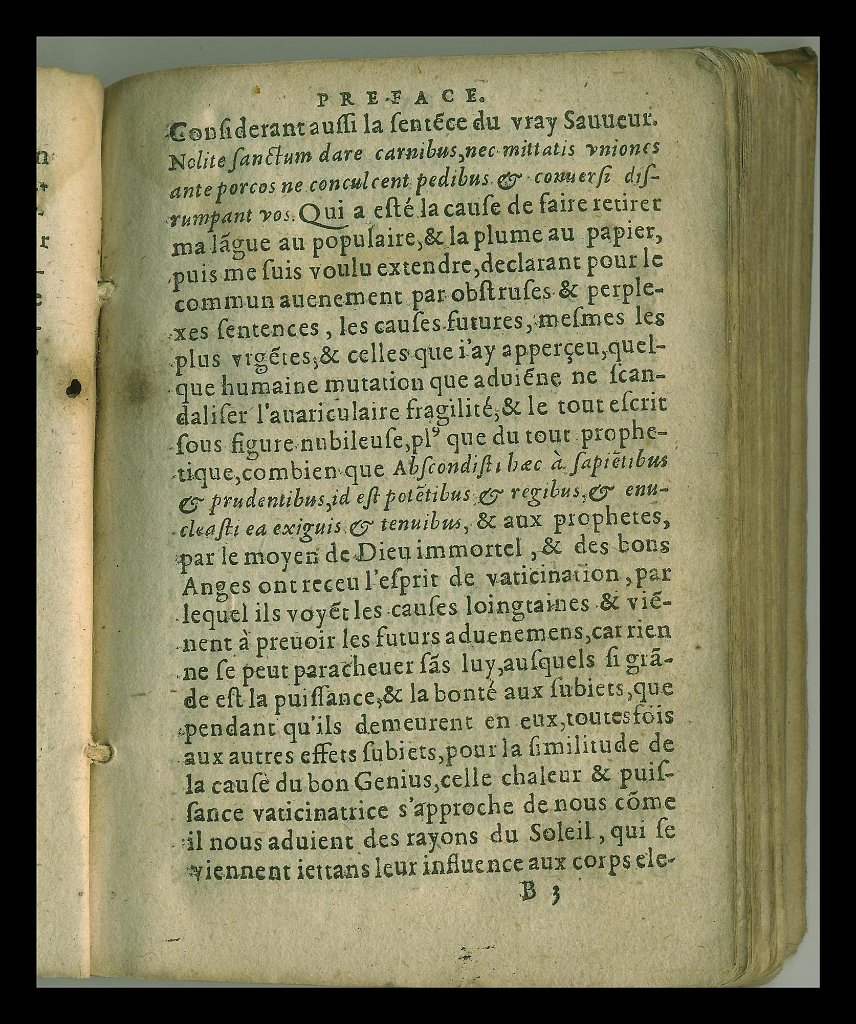 PREFACE.
Conſiderant auſſi la ſentẽce du vray Sauueur.
Nolite ſanctum dare canibus, nec mittatis vniones
ante porcos ne conculcent pedibus & conuerſi diſ-
rumpant vos. Qui a eſté la cauſe de faire retirer
ma lãgue au populaire, & la plume au papier,
puis me ſuis voulu extendre, declarant pour le
commun auenement par obſtruſes & perple-
xes ſentences, les cauſes futures, meſmes les
plus vrgẽtes, & celles que i'ay apperçeu, quel-
que humaine mutation que aduiẽne ne ſcan-
daliſer l'auariculaire fragilité, & le tout eſcrit
ſous figure nubileuſe, plꝰ que du tout prophe-
tique, combien que Abſcondiſti hæc à ſapiẽtibus
& prudentibus, id eſt potẽtibus & regibus, & enu-
cleaſti ea exiguis & tenuibus, & aux prophetes,
par le moyen de Dieu immortel, & des bons
Anges ont receu l'eſprit de vaticination, par
lequel ils voyẽt les cauſes loingtaines & viẽ-
nent à preuoir les futurs aduenemens, car rien
ne ſe peut paracheuer ſãs luy, auſquels ſi grã-
de eſt la puiſſance, & la bonté aux ſubiets, que
pendant qu'ils demeurent en eux, toutesfois
aux autres effets ſubiets, pour la ſimilitude de
la cauſe du bon Genius, celle chaleur & puiſ-
ſance vaticinatrice s'approche de nous cõme
il nous aduient des rayons du Soleil, qui ſe
viennent iettans leur influence aux corps ele-
B 3